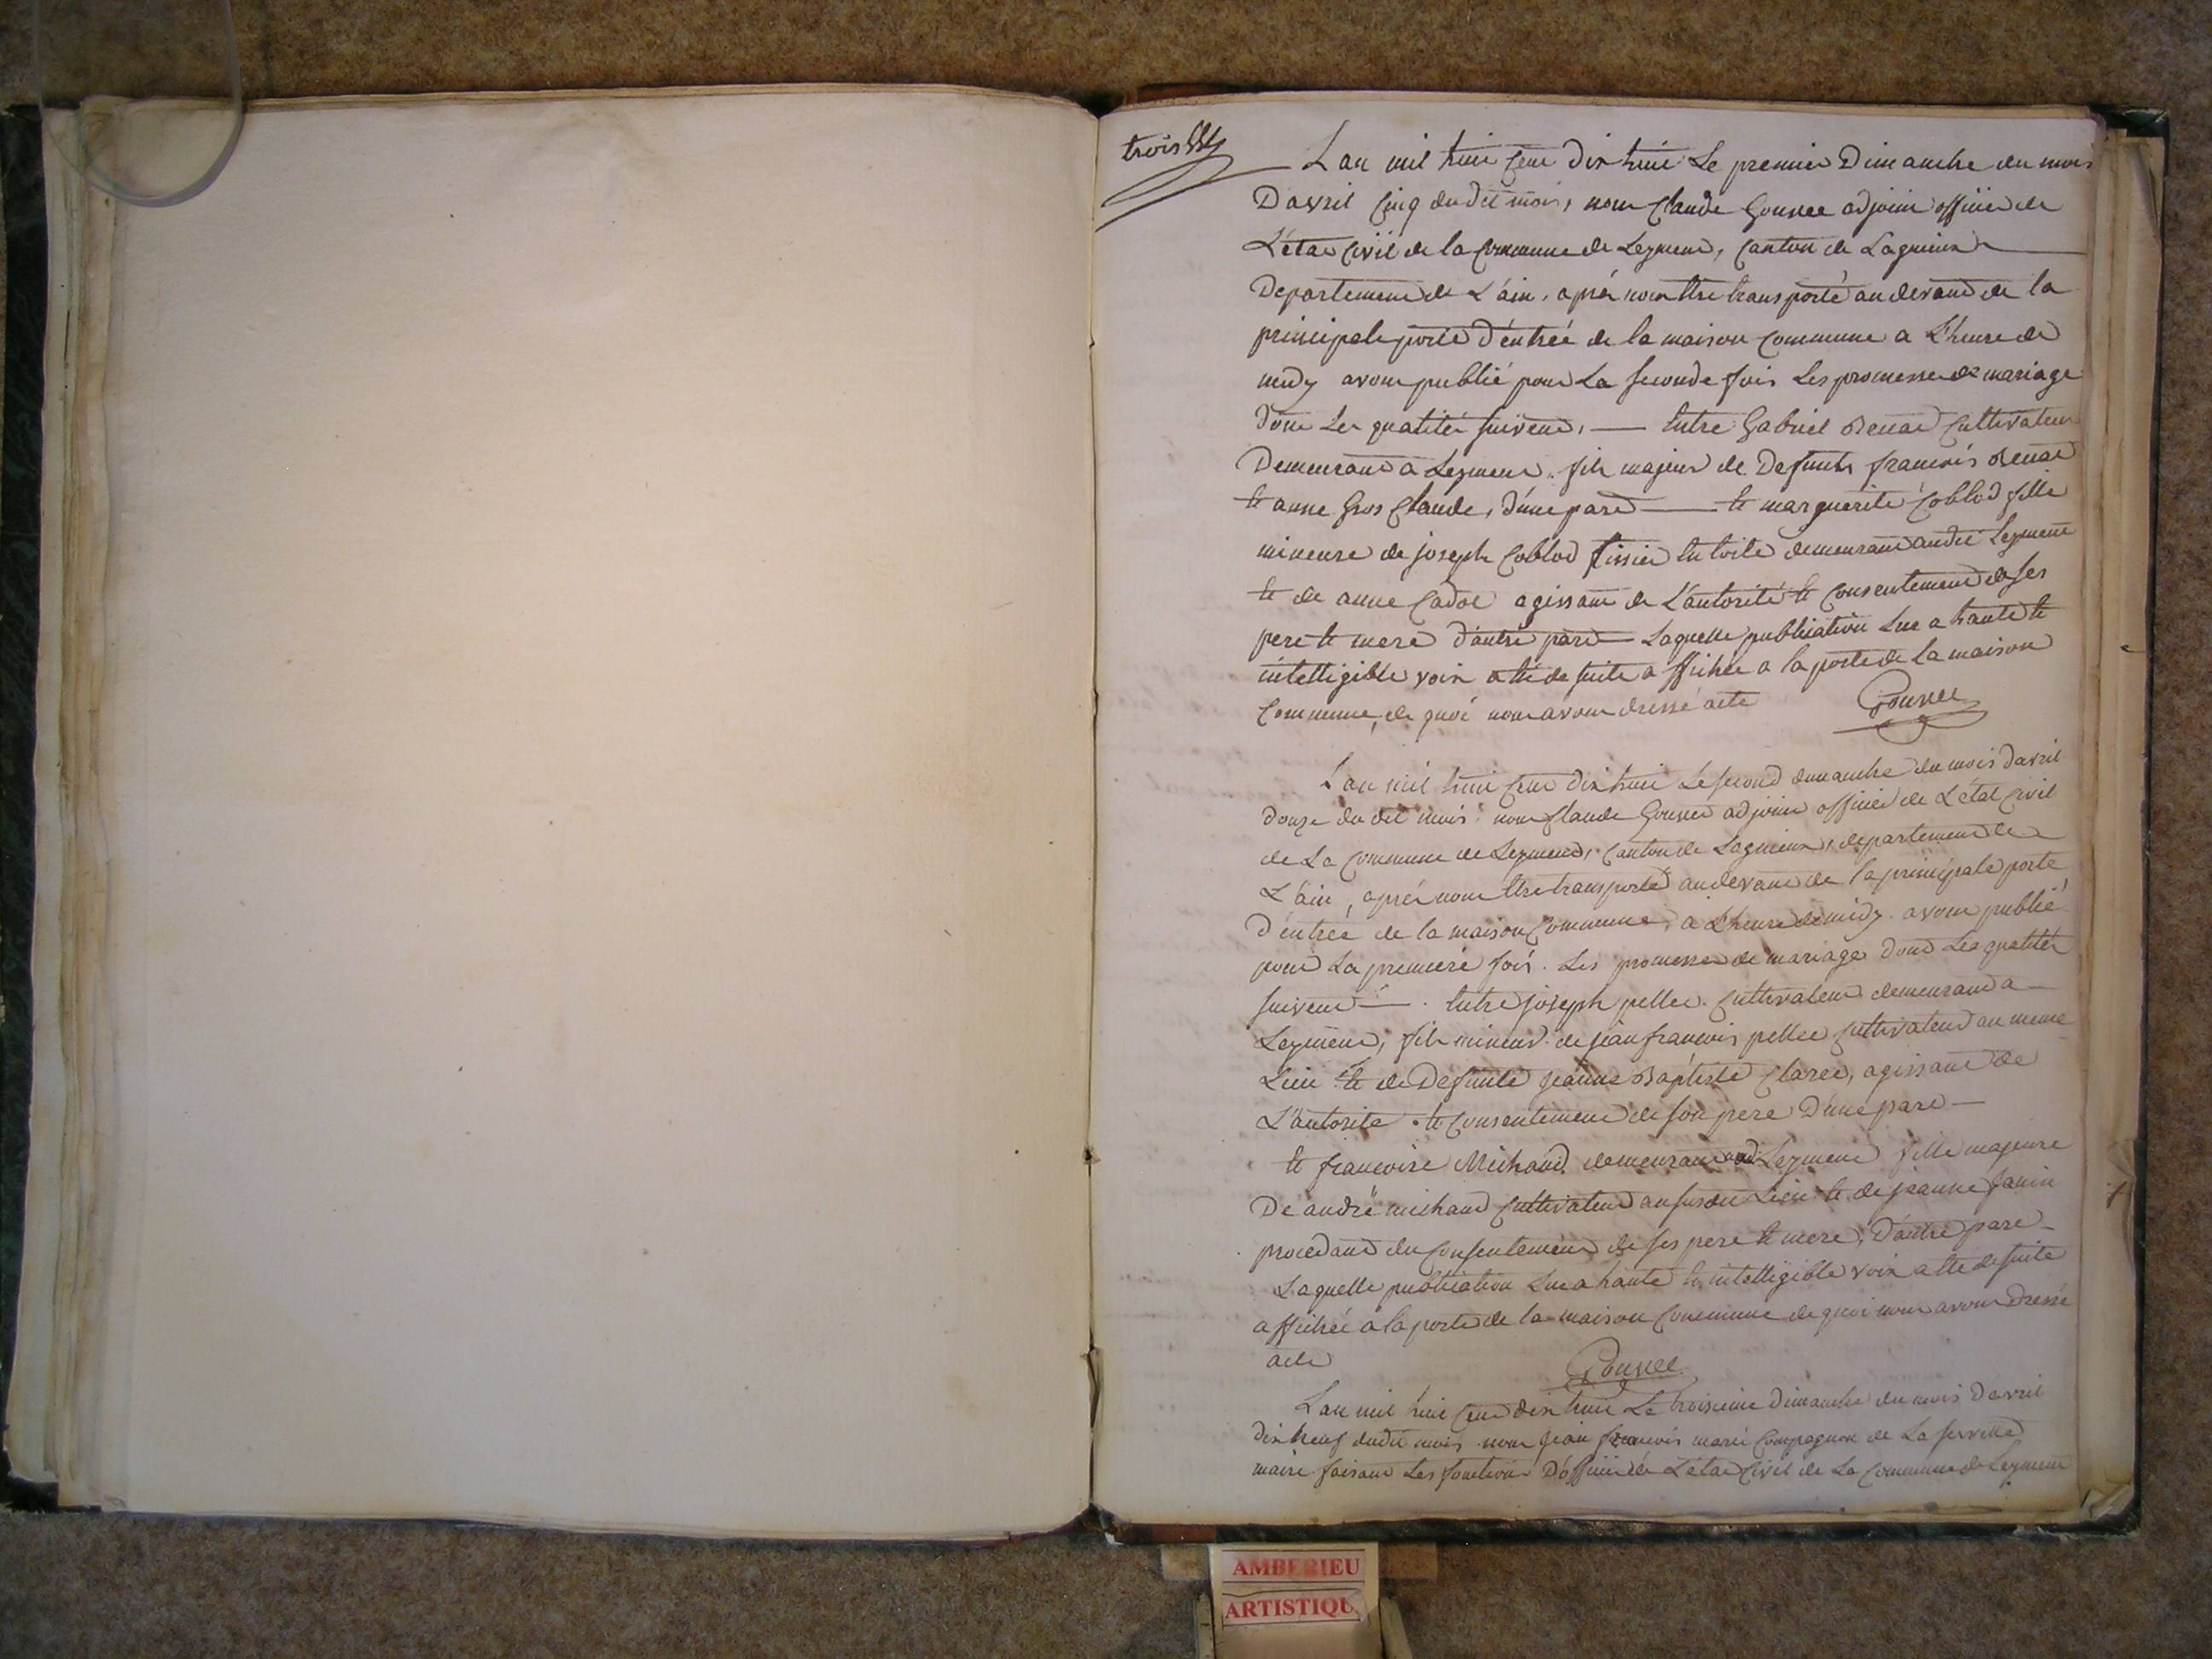 trois
L'an mil huit cent dix huit Le premier Dimanche du mois
D'avril cinq dudit mois, nous Claude Gouvee adjoint officier de
L'état civil de la commune de Leyment, canton de Lagnieux
Departement de L'ain, après nous être transporté au devant de la
principale porte d'entrée de la maison commune a L'heure de
midy avons publié pour La seconde fois Les promesses de mariage
dont Les qualités suivent, — Entre Gabriel Benat cultivateur
Demeurant a Leyment, fils majeur de Defunts françois Benat
Et anne Gros Claude, d'une part — Et marguerite Coblod fille
mineure de joseph Coblod tissier En toile demeurant audit Leyment
Et de anne Cadot agissant de L'autorité Et consentement de ses
pere Et mere d'autre part — Laquelle publication Lue a haute Et
intelligible voix a été de suite affichée a la porte de La maison
Commune, de quoi nous avons dressé acte
Gouvee
L'an mil huit cent dix huit Le second dimanche du mois d'avril
douze du dit mois: nous Claude Gouvee adjoint officier de L'état civil
de La commune de Leyment, canton de Lagnieux, departement de
L'ain, après nous être transporté au devant de la principale porte
D'entrée de la maison commune, a L'heure de midy avons publié
pour La premiere fois. Les promesses de mariage dont Les qualités
suivent — . Entre joseph pellee cultivateur demeurant a
Leyment, fils mineur de jean françois pellee cultivateur au meme
Lieu Et de Defunte jeanne Baptiste Claree, agissant de
L'autorité Et consentement de son pere D'une part —
Et françoise Michaud demeurant audit Leyment fille majeure
De andré michaud cultivateur au susdit Lieu Et de jeanne janin
procedant du consentement de ses pere Et mere, D'autre part —
Laquelle publication Lue a haute Et intelligible voix a été de suite
affichée a la porte de la maison commune de quoi nous avons Dressé
acte
Gouvee
L'an mil huit cent dix huit Le troisieme Dimanche du mois D'avril
dix neuf dudit mois nous jean françois marie Compagnon de La servette
maire faisant Les fonctions D'officier de L'état civil de La commune de Leyment
AMBERIEU
ARTISTIQU